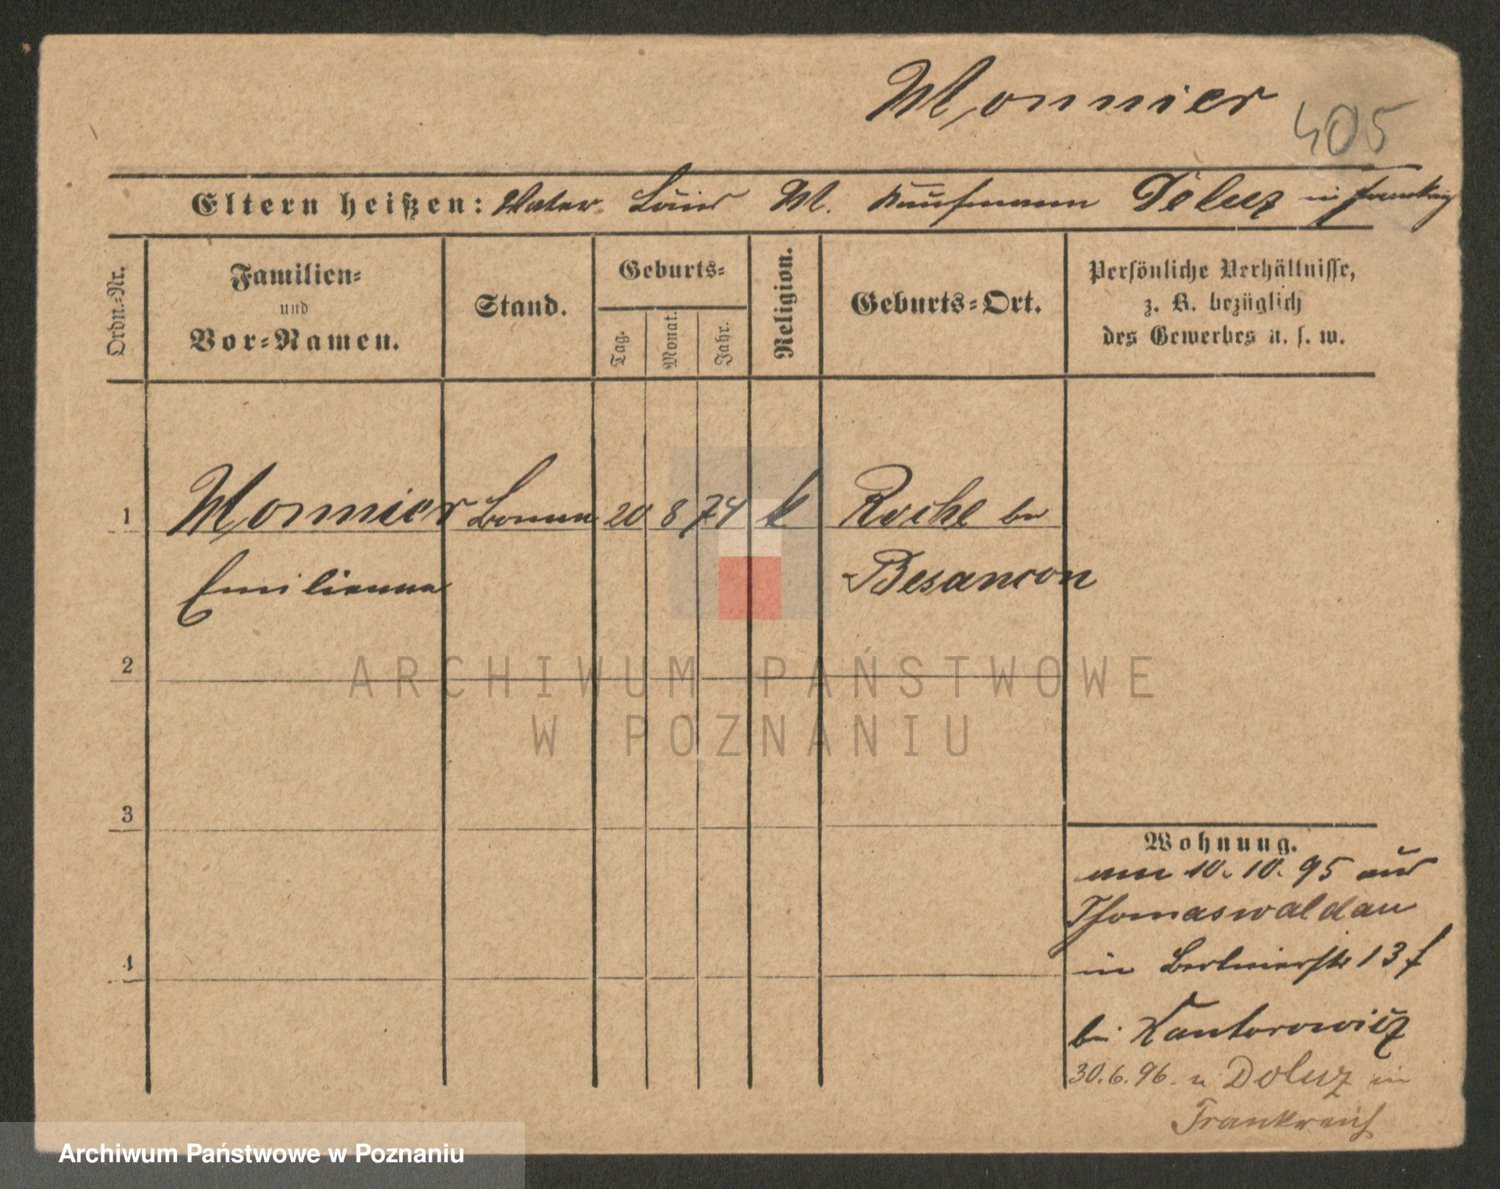 Monnier
405
Eltern heißen: Vater Louis M. Kaufmann Doluz in Frankr
Ordn.-Nr.
Familien-
und
Vor-Namen.
Stand.
Geburts-
Tag.
Monat.
Jahr.
Religion.
Geburts-Ort.
Persönliche Verhältnisse,
z. B. bezüglich
des Gewerbes u. s. w.
1 Monnier Bonne 20 8 74 k Roche bei
Emilienne Besancon
2
3
4
Wohnung.
am 10. 10. 95 aus
Thomaswaldau
in Berlinerstr 13 f
bei Kantorowicz
30.6.96. n Doluz in
Frankreich
ARCHIWUM PAŃSTWOWE
W POZNANIU
Archiwum Państwowe w Poznaniu